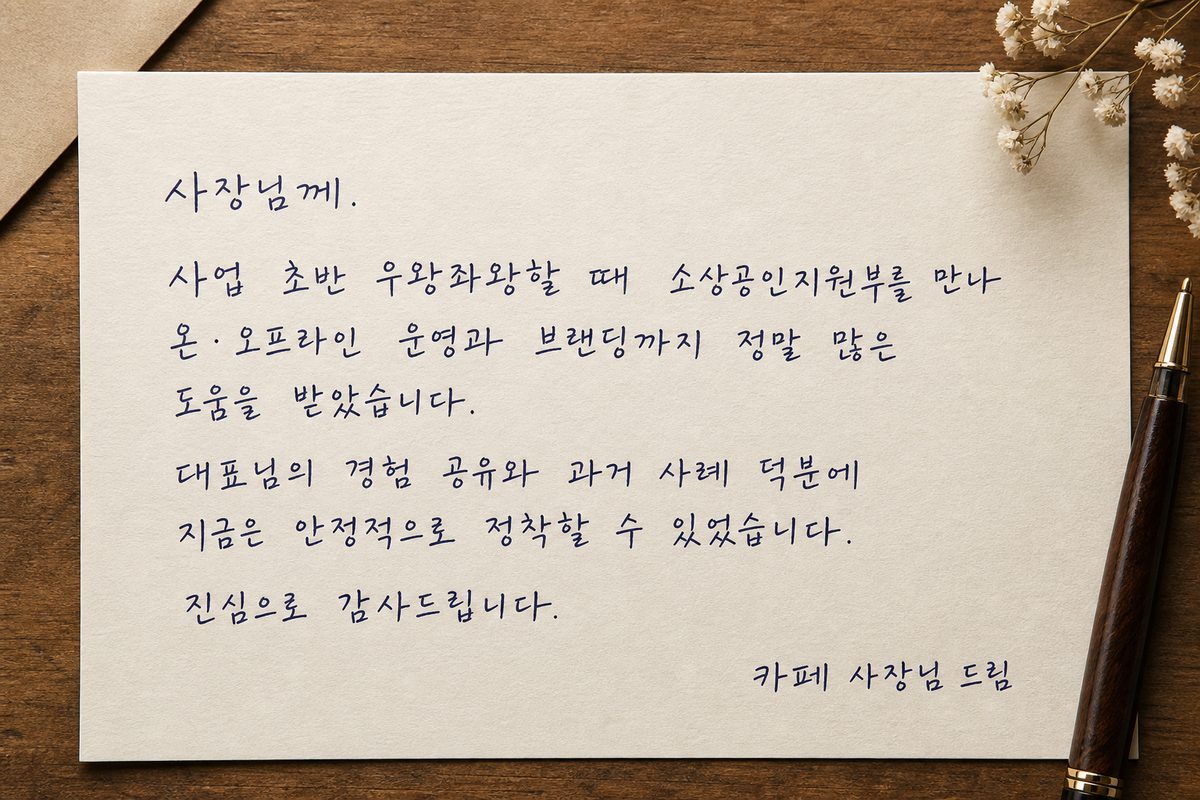 사장님께.
사업 초반 우왕좌왕할 때 소상공인지원부를 만나
온·오프라인 운영과 브랜딩까지 정말 많은
도움을 받았습니다.
대표님의 경험 공유와 과거 사례 덕분에
지금은 안정적으로 정착할 수 있었습니다.
진심으로 감사드립니다.
카페 사장님 드림